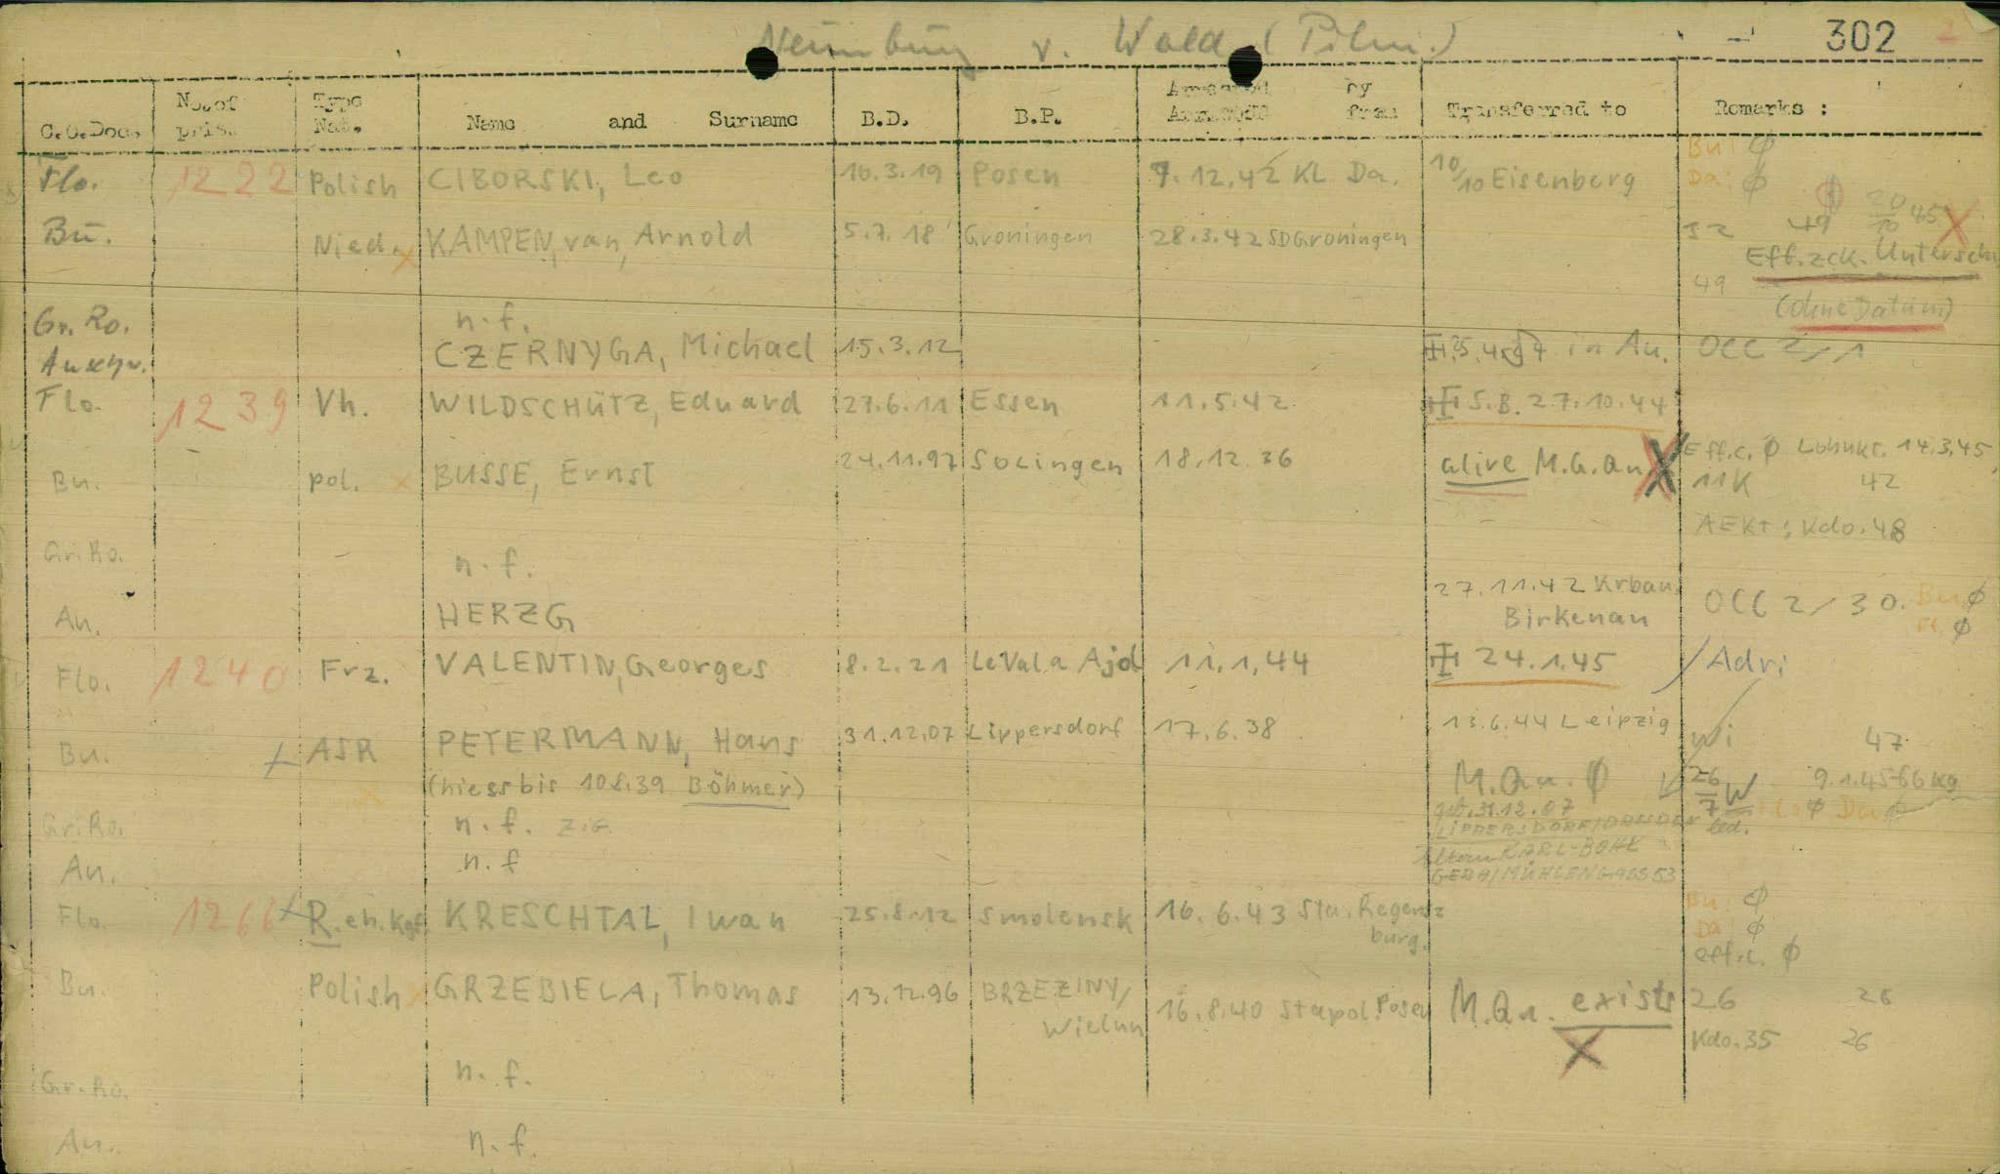 Neunburg v. Wald (Pilm.) 302
C.C.Doc. No. of pris. Type Nat. Name and Surname B.D. B.P. Arrested by from Transferred to Remarks :
Bu: φ
Flo. 1222 Polish CIBORSKI, Leo 10.3.19 Posen 7.12.42 KL Da. 10/10 Eisenberg Da: φ
Bu. Nied. KAMPEN, van, Arnold 5.7.18 Groningen 28.3.42 SD Groningen 49 20/10 45 X
Eff. zck. Untersch
49
(ohne Datum)
Gr. Ro. n.f.
Auschw. CZERNYGA, Michael 15.3.12 in Au. OCC 2/1
Flo. 1239 Vh. WILDSCHÜTZ, Eduard 27.6.11 Essen 11.5.42 S.B. 27.10.44
Bu. pol. x BUSSE, Ernst 24.11.97 Solingen 18.12.36 alive M.Q.Qu X Eff.c. φ Lohnkt. 14.3.45
11K 42
AEKt: Kdo. 48
Gr.Ro. - n.f.
An. HERZG 27.11.42 Krbau. Birkenau OCC 2/30. Bu φ
Fl. φ
Flo. 1240 Frz. VALENTIN, Georges 8.2.21 Le Val a Ajol 11.1.44 24.1.45 /Adri
Bu. ASR PETERMANN, Hans 31.12.07 Lippersdorf 17.6.38 13.6.44 Leipzig Wi 47
(hiess bis 10.8.39 Böhmer) M.Qu. φ 26/7 W 9.1.45-66 kg
Gr.Ro. n.f. Z.G. geb. 31.12.07 led. φ Da φ
LIPPERSDORF/DRESDEN
An. n.f Eltern KARL-BÖHE
GERA/MÜHLENGASS 53
Flo. 1266 R. eh. Kgf. KRESCHTAL, Iwan 25.8.12 Smolensk 16.6.43 Sta. Regensburg. Bu: φ
Da: φ
eff.c. φ
Bu. Polish GRZEBIELA, Thomas 13.12.96 BRZEZINY/ Wielun 16.8.40 Stapol. Posen M.Qu. exists X 26 26
Kdo. 35 26
Gr. Ro. n.f.
An. n.f.